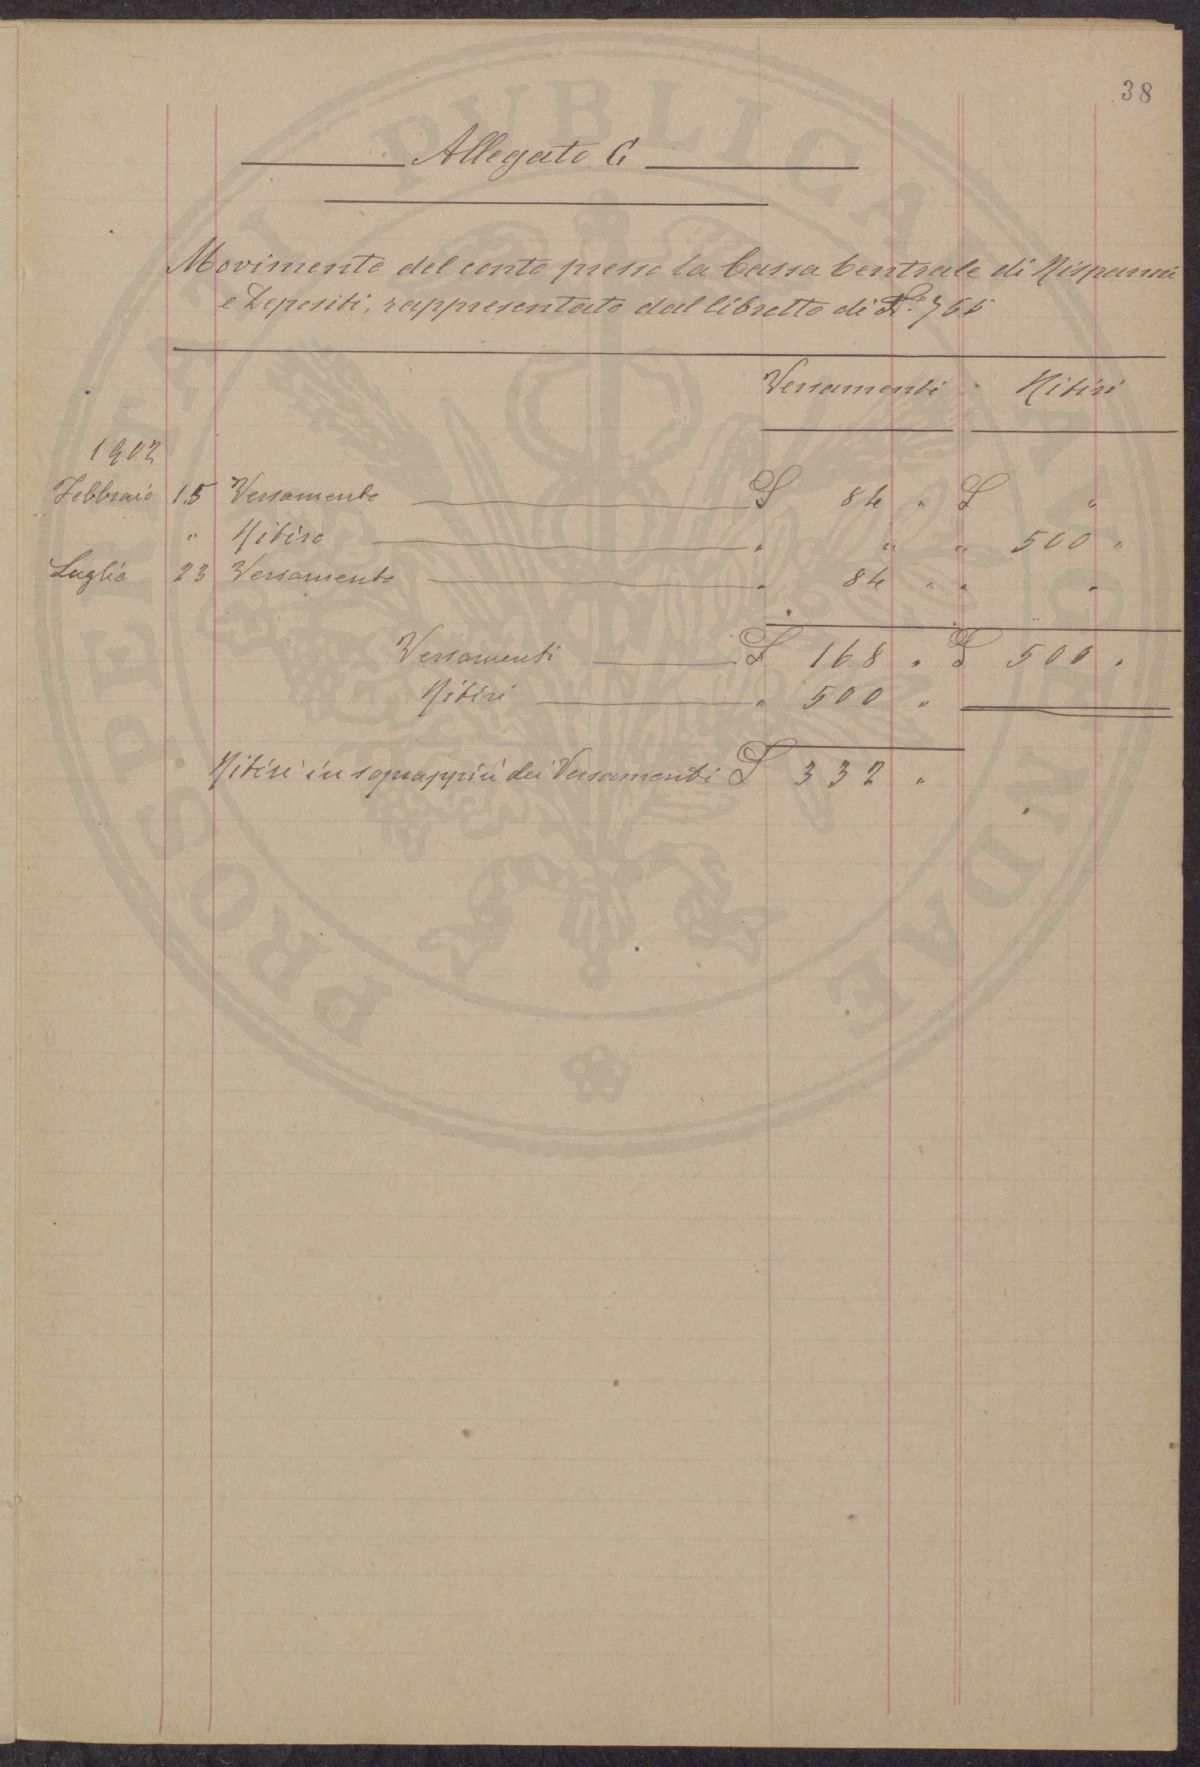 38
Allegato C
Movimento del conto presso la Cassa Centrale di Risparmi
e Depositi, rappresentato dal libretto di
Versamenti Ritiri
1902
Febbraio 15 Versamento £ 84 " £ "
" Ritiro " " " 500 "
Luglio 23 Versamento " 84 " " "
Versamenti £ 168 " £ 500 "
Ritiri " 500 "
Ritiri in soprappiù dei Versamenti £ 332 "
PROSPERITATI PUBLICAE AUGENDAE